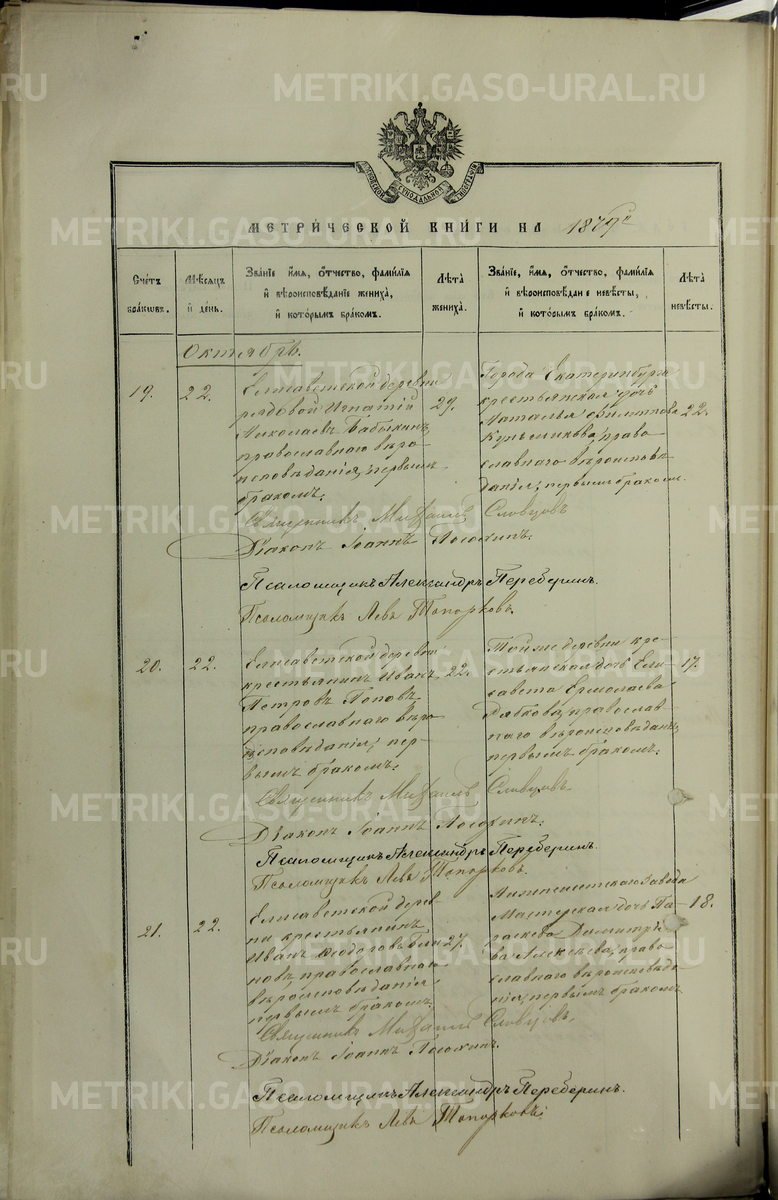 METRIKI.GASO-URAL.RU
МЕТРИ́ЧЕСКОЙ КНИ́ГИ НА 1879й
Счётъ бра́кωвъ.
Мѣ́сяцъ и҆ де́нь.
Зва́нїе и҆́мѧ, ѻ҆́тчество, фами́лїѧ и҆ вѣроисповѣ́данїе жениха̀, и҆ кото́рымъ бра́комъ.
Лѣ́та жениха̀.
Зва́нїе, и҆́мѧ, ѻ҆́тчество, фами́лїѧ и҆ вѣроисповѣ́данїе невѣ́сты, и҆ кото́рымъ бра́комъ.
Лѣ́та невѣ́сты.
Октябрь.
19.
22.
Елисаветской деревни
рядовой Игнатій
Николаевъ Бабыкинъ,
православнаго вѣро
исповѣданія, первымъ
бракомъ.
29.
Города Екатеринбурга
крестьянская дочь
Наталья Филиппова
православнаго вѣроисповѣ
данія, первымъ бракомъ.
22.
Священникъ Михаилъ Словцовъ
Діаконъ Іоаннъ
Псаломщикъ Александръ Переберин.
Псаломщикъ Левъ Топорковъ.
20.
22.
Елисаветской деревни
крестьянинъ Иванъ
Петровъ Поповъ,
православнаго вѣро
исповѣданія, пер-
вымъ бракомъ.
22.
Тойже деревни кре-
стьянская дочь Ели-
савета Ермолаева
Рябкова, православ
наго вѣроисповѣданія,
первымъ бракомъ.
17.
Священникъ Михаилъ Словцовъ
Діаконъ Іоаннъ
Псаломщикъ Александръ Переберин.
Псаломщикъ Левъ Топорковъ.
21.
22.
Елисаветской дерев
ни крестьянинъ
Иванъ Ѳеодоровъ
православнаго
вѣроисповѣданія
первымъ бракомъ.
27.
завода
Мастерская дочь Па-
раскева Димитрі
ева Алексѣева, право
славнаго вѣроисповѣда
нія, первымъ бракомъ
18.
Священникъ Михаилъ Словцовъ,
Діаконъ Іоаннъ
Псаломщикъ Александръ Переберин.
Псаломщикъ Левъ Топорковъ.